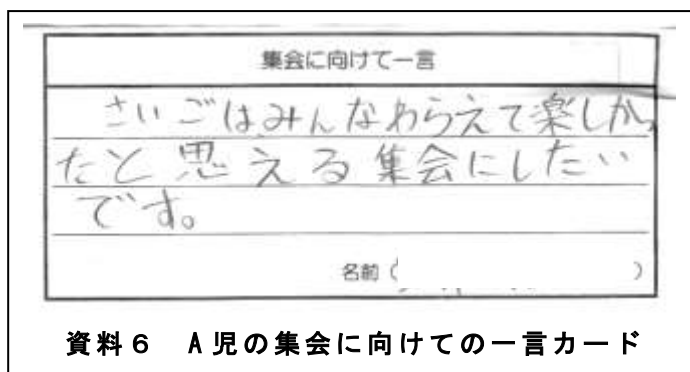 集会に向けて一言
さいごはみんなわらえて楽しかっ
たと思える集会にしたい
です。
名前（　　　　　　）
資料６　Ａ児の集会に向けての一言カード